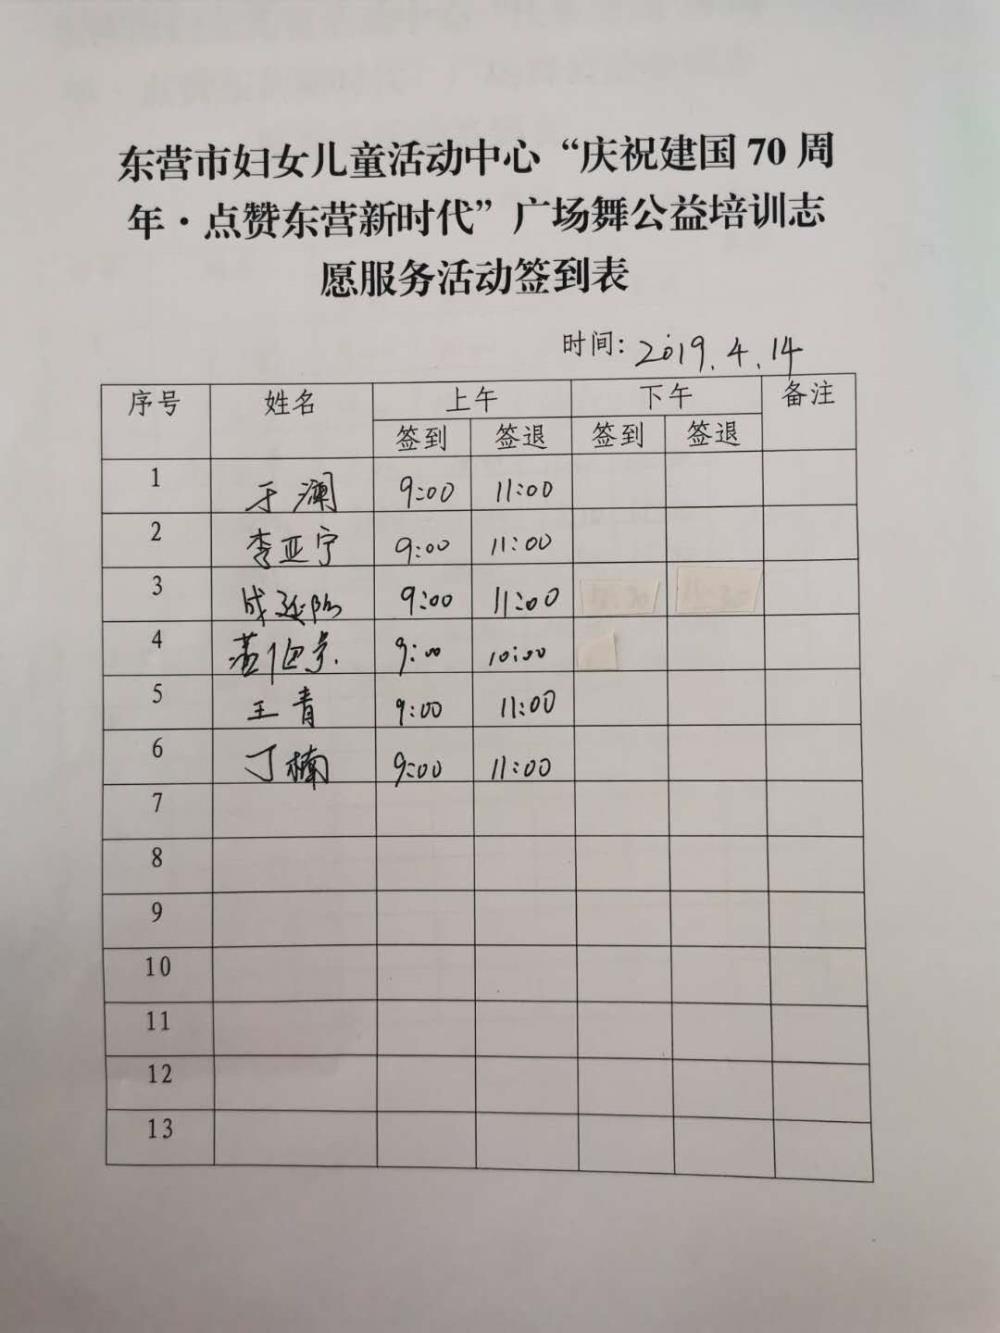 东营市妇女儿童活动中心“庆祝建国 70 周
年·点赞东营新时代”广场舞公益培训志
愿服务活动签到表
时间: 2019.4.14
序号 姓名 上午 下午 备注
签到 签退 签到 签退
1 于澜 9:00 11:00
2 李亚宁 9:00 11:00
3 9:00 11:00
4 9:00 10:00
5 王青 9:00 11:00
6 丁楠 9:00 11:00
7
8
9
10
11
12
13